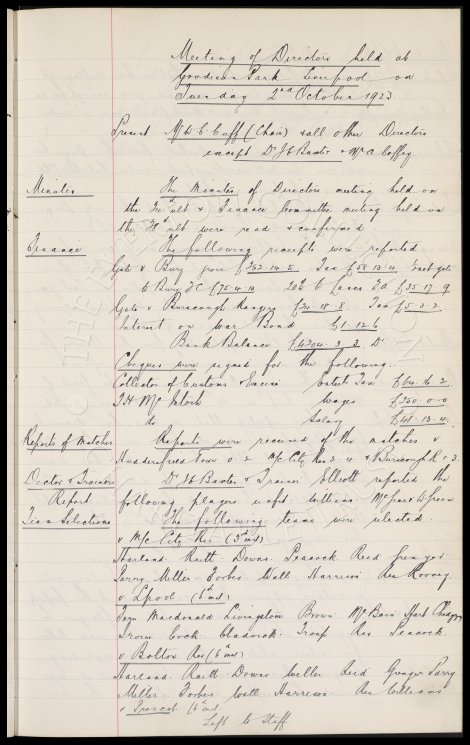 Meeting of Directors held at
Goodison Park Liverpool on
Tuesday 2nd October 1923.
Present Mr W C Cuff (Chair) & all other Directors
except Dr J C Baxter & Mr A Coffey
Minutes The Minutes of Directors meeting held on
the ult & Finance Committee meeting held on
the ult were read & confirmed.
Finance The following receipts were reported
Gate v Bury gross £262.14.5 Tax £58.13.4
to Bury FC £75.4.4 20% to League £35.17.9
Gate v Burscough Rangers £24.18.8 Tax £5.3.2
Interest on War Bond £1.12.6
Bank Balance £4204.3.3 Dr
Cheques were signed for the following.
Collector of Customs & Excise Entert Tax £64.16.2
T.H. McIntosh Wages £250.0.0
do Salary £41.13.4
Reports of Matches Reports were received of the matches v
Huddersfield Town 0.2 M/c City Res 2.4 & v Burscough R 1.3.
Doctor & Trainers Dr J C Baxter & Trainer Elliott reported the
Report following players unfit Williams McGrae & Green
Team Selections The following teams were selected
v M/c City Res (3rd inst)
Harland Raitt Downs Peacock Reid Grenyer
Parry Miller Forbes Wall Harrison Res Rooney
v L'pool (6th inst)
Fern Macdonald Livingstone Brown McBain Hart Chedgzoy
Irvine Cock Chadwick Troup Res Peacock
v Bolton Res (6th inst)
Harland Raitt Downs Weller Reid Grenyer Parry
Miller Forbes Wall Harrison Res Williams
v Prescot (6th inst)
Left to Staff